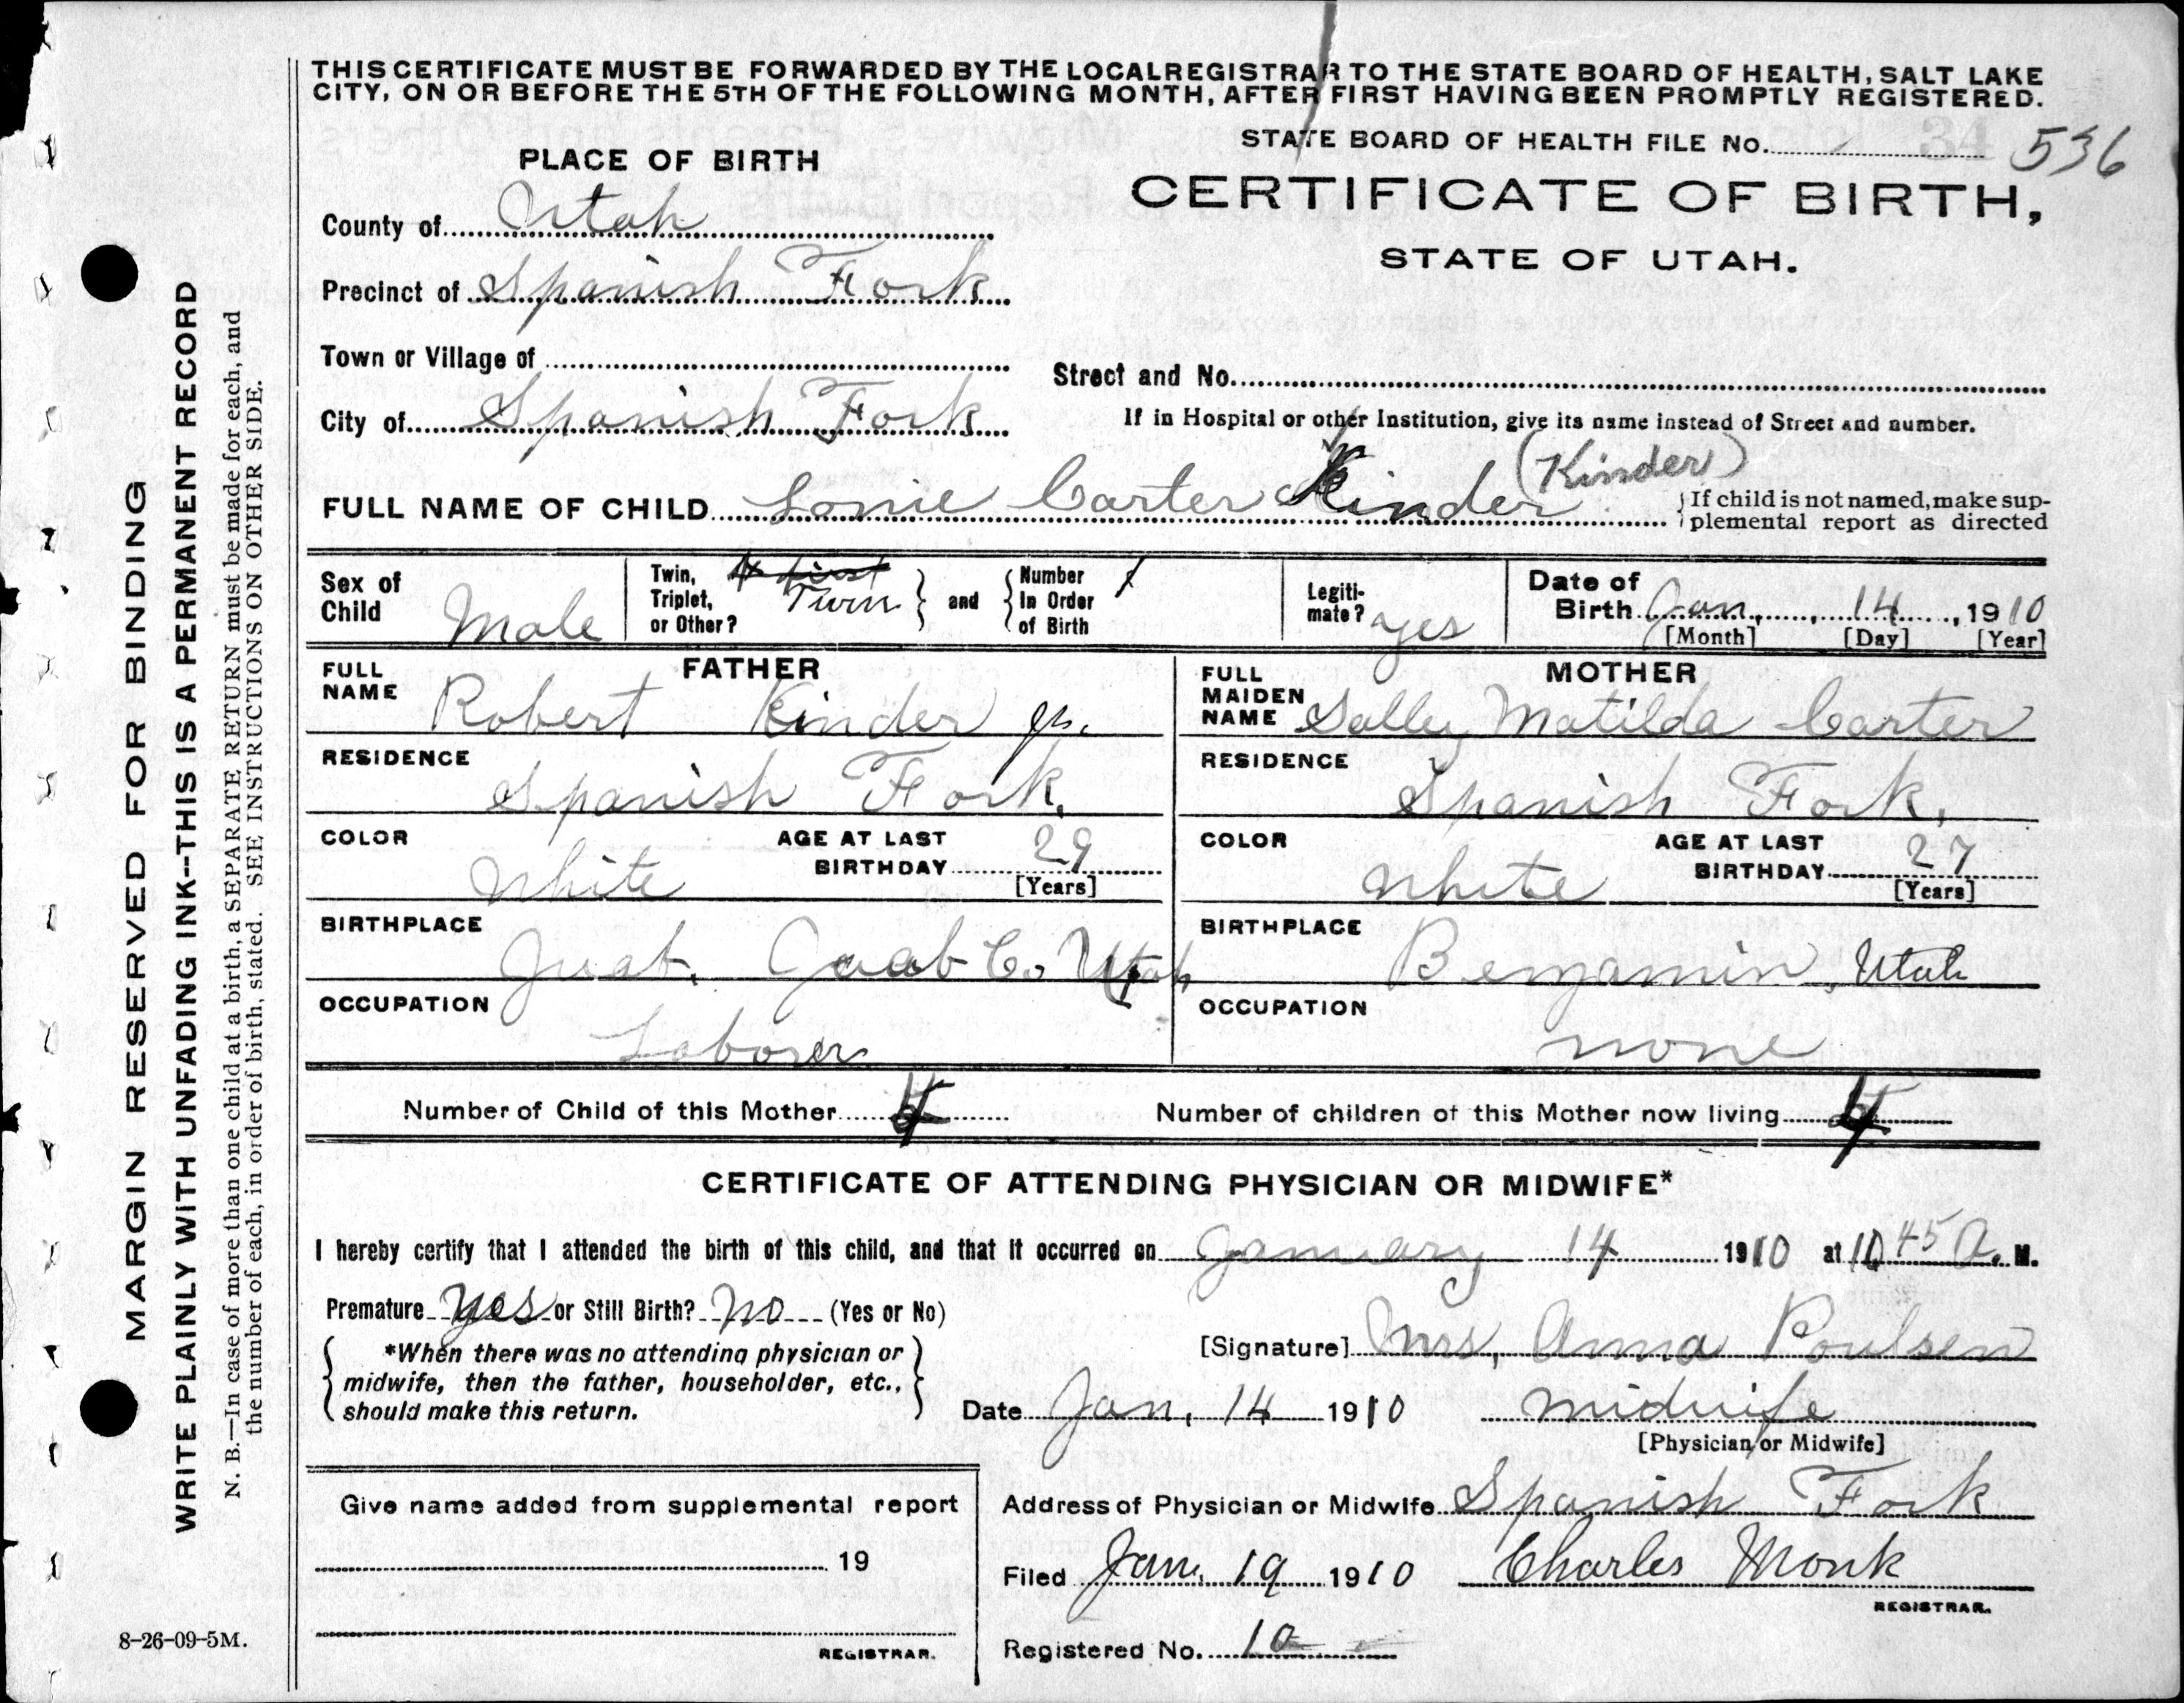 THIS CERTIFICATE MUST BE FORWARDED BY THE LOCAL REGISTRAR TO THE STATE BOARD OF HEALTH, SALT LAKE
CITY, ON OR BEFORE THE 5TH OF THE FOLLOWING MONTH, AFTER FIRST HAVING BEEN PROMPTLY REGISTERED.
STATE BOARD OF HEALTH FILE No. 34 536
PLACE OF BIRTH
CERTIFICATE OF BIRTH,
STATE OF UTAH.
County of Utah
Precinct of Spanish Fork
Town or Village of
Street and No.
City of Spanish Fork
If in Hospital or other Institution, give its name instead of Street and number.
(Kinder)
FULL NAME OF CHILD Lonie Carter Kinder
If child is not named, make sup-
plemental report as directed
Sex of Child Male
Twin, Triplet, or Other? Twin
and Number In Order of Birth 1
Legiti-mate? yes
Date of Birth Jan. 14, 1910
[Month] [Day] [Year]
FATHER
FULL NAME Robert Kinder jr.
RESIDENCE Spanish Fork,
COLOR White
AGE AT LAST BIRTHDAY 29
[Years]
BIRTHPLACE Juab, Juab Co. Utah
OCCUPATION Laborer
MOTHER
FULL MAIDEN NAME Sally Matilda Carter
RESIDENCE Spanish Fork,
COLOR White
AGE AT LAST BIRTHDAY 27
[Years]
BIRTHPLACE Benjamin, Utah
OCCUPATION none
Number of Child of this Mother 4
Number of children of this Mother now living 4
CERTIFICATE OF ATTENDING PHYSICIAN OR MIDWIFE*
I hereby certify that I attended the birth of this child, and that it occurred on January 14 1910 at 10 45 A. M.
Premature yes or Still Birth? no (Yes or No)
*When there was no attending physician or
midwife, then the father, householder, etc.,
should make this return.
[Signature] Mrs. Anna Poulsen
Date Jan. 14 1910 midwife
[Physician or Midwife]
Give name added from supplemental report
19
REGISTRAR.
Address of Physician or Midwife Spanish Fork
Filed Jan. 19 1910 Charles Monk
REGISTRAR.
Registered No. 10
8-26-09-5M.
MARGIN RESERVED FOR BINDING
WRITE PLAINLY WITH UNFADING INK--THIS IS A PERMANENT RECORD
N. B.—In case of more than one child at a birth, a SEPARATE RETURN must be made for each, and
the number of each, in order of birth, stated. SEE INSTRUCTIONS ON OTHER SIDE.